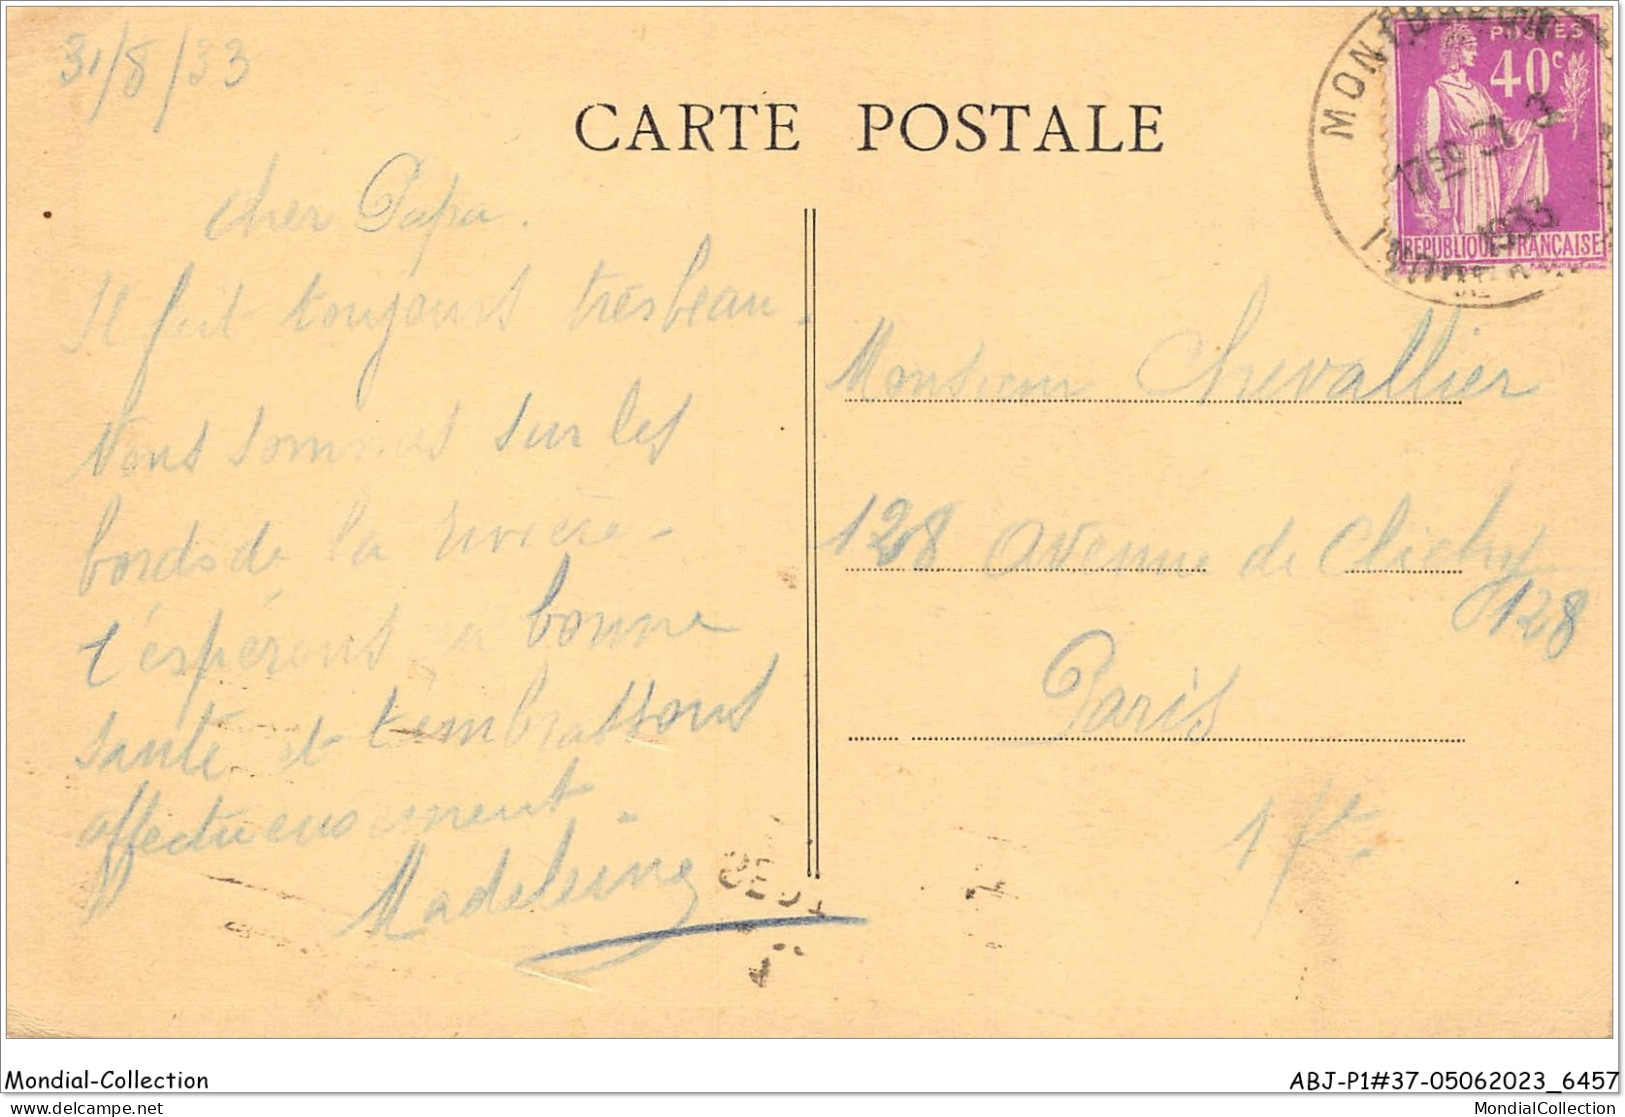 31/8/33
CARTE POSTALE
POSTES
40c
17 50
1933
REPUBLIQUE FRANÇAISE
Cher Papa.
Il fait toujours très beau.
Nous sommes sur les
bords de la rivière.
t'espérons en bonne
santé et t'embrassons
affectueusement.
Madeleine
Monsieur Chevallier
128 avenue de Clichy
128
Paris
17e
Mondial-Collection
ABJ-P1#37-05062023_6457
delcampe.net
MondialCollection